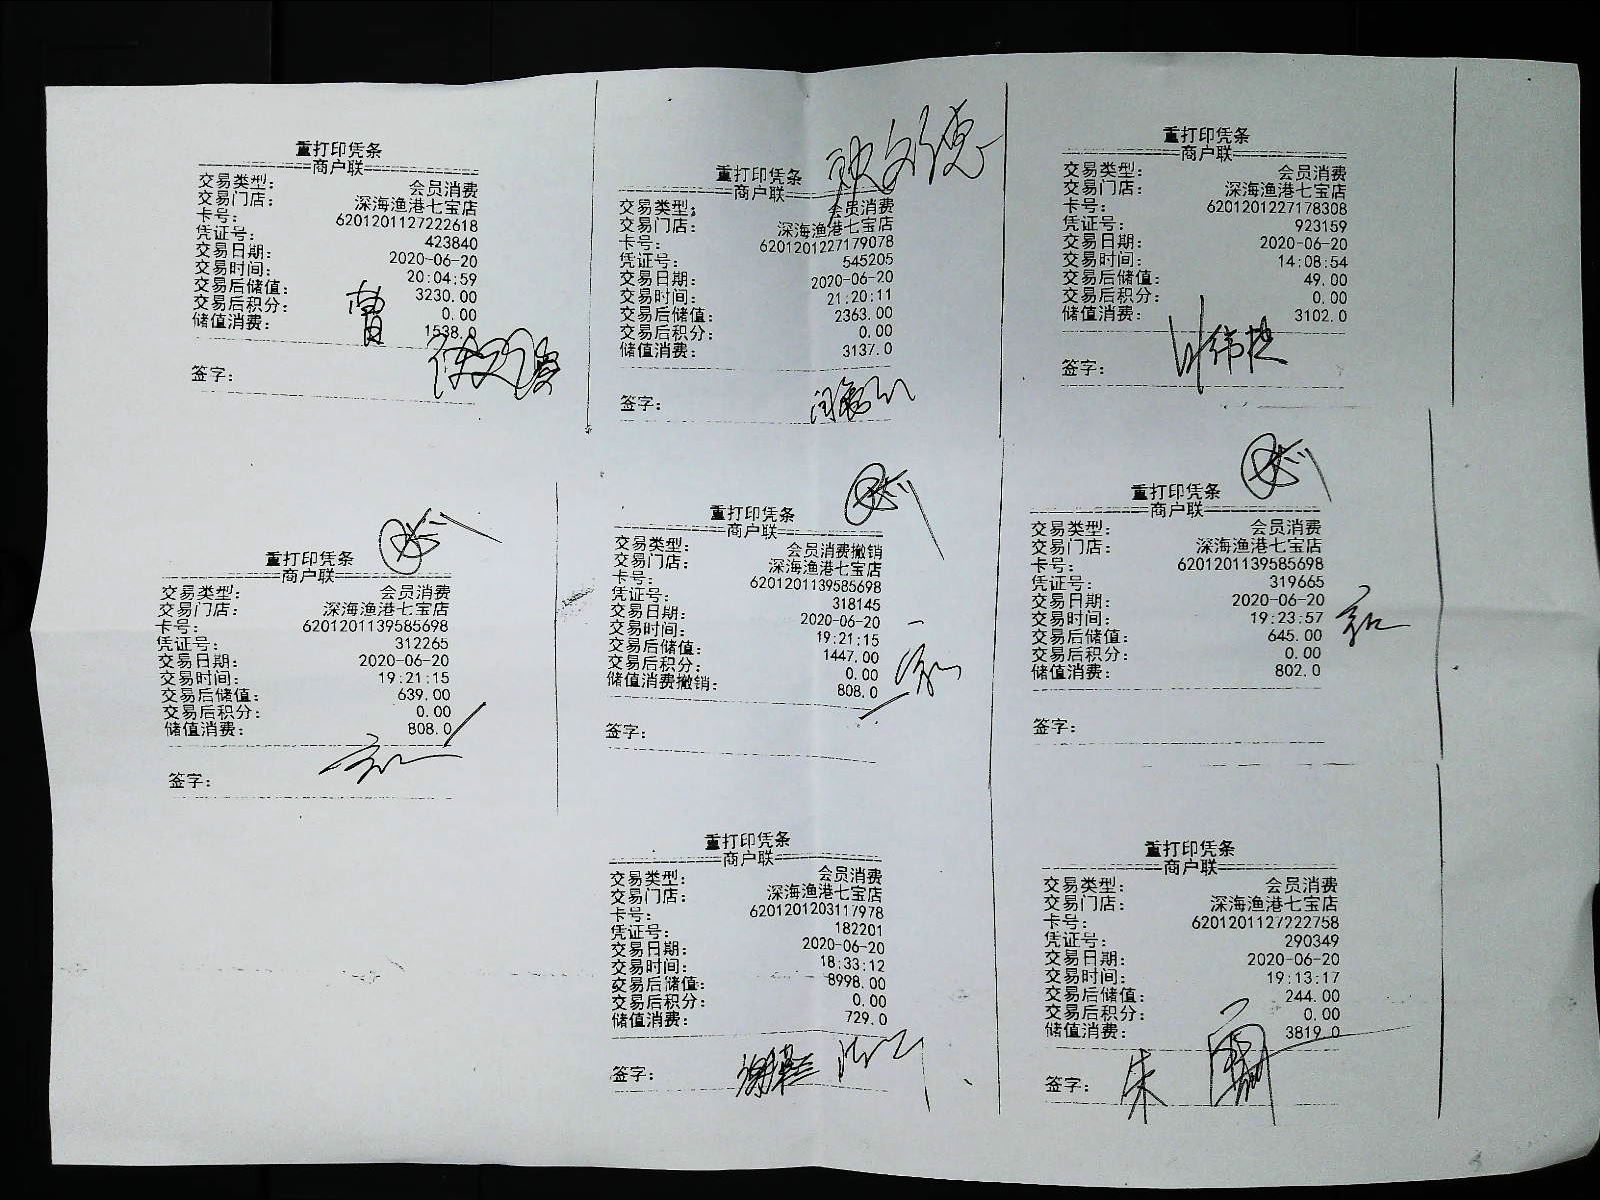 重打印凭条
商户联
交易类型: 会员消费
交易门店: 深海渔港七宝店
卡号: 6201201127222618
凭证号: 423840
交易日期: 2020-06-20
交易时间: 20:04:59
交易后储值: 3230.00
交易后积分: 0.00
储值消费: 1538.0
曹
签字:
重打印凭条
商户联
交易类型: 会员消费
交易门店: 深海渔港七宝店
卡号: 6201201227179078
凭证号: 545205
交易日期: 2020-06-20
交易时间: 21:20:11
交易后储值: 2363.00
交易后积分: 0.00
储值消费: 3137.0
签字:
重打印凭条
商户联
交易类型: 会员消费
交易门店: 深海渔港七宝店
卡号: 6201201227178308
凭证号: 923159
交易日期: 2020-06-20
交易时间: 14:08:54
交易后储值: 49.00
交易后积分: 0.00
储值消费: 3102.0
签字:
重打印凭条
商户联
交易类型: 会员消费
交易门店: 深海渔港七宝店
卡号: 6201201139585698
凭证号: 312265
交易日期: 2020-06-20
交易时间: 19:21:15
交易后储值: 639.00
交易后积分: 0.00
储值消费: 808.0
签字:
重打印凭条
商户联
交易类型: 会员消费撤销
交易门店: 深海渔港七宝店
卡号: 6201201139585698
凭证号: 318145
交易日期: 2020-06-20
交易时间: 19:21:15
交易后储值: 1447.00
交易后积分: 0.00
储值消费撤销: 808.0
签字:
重打印凭条
商户联
交易类型: 会员消费
交易门店: 深海渔港七宝店
卡号: 6201201139585698
凭证号: 319665
交易日期: 2020-06-20
交易时间: 19:23:57
交易后储值: 645.00
交易后积分: 0.00
储值消费: 802.0
签字:
重打印凭条
商户联
交易类型: 会员消费
交易门店: 深海渔港七宝店
卡号: 6201201203117978
凭证号: 182201
交易日期: 2020-06-20
交易时间: 18:33:12
交易后储值: 8998.00
交易后积分: 0.00
储值消费: 729.0
签字:
重打印凭条
商户联
交易类型: 会员消费
交易门店: 深海渔港七宝店
卡号: 6201201127222758
凭证号: 290349
交易日期: 2020-06-20
交易时间: 19:13:17
交易后储值: 244.00
交易后积分: 0.00
储值消费: 3819.0
签字: 朱